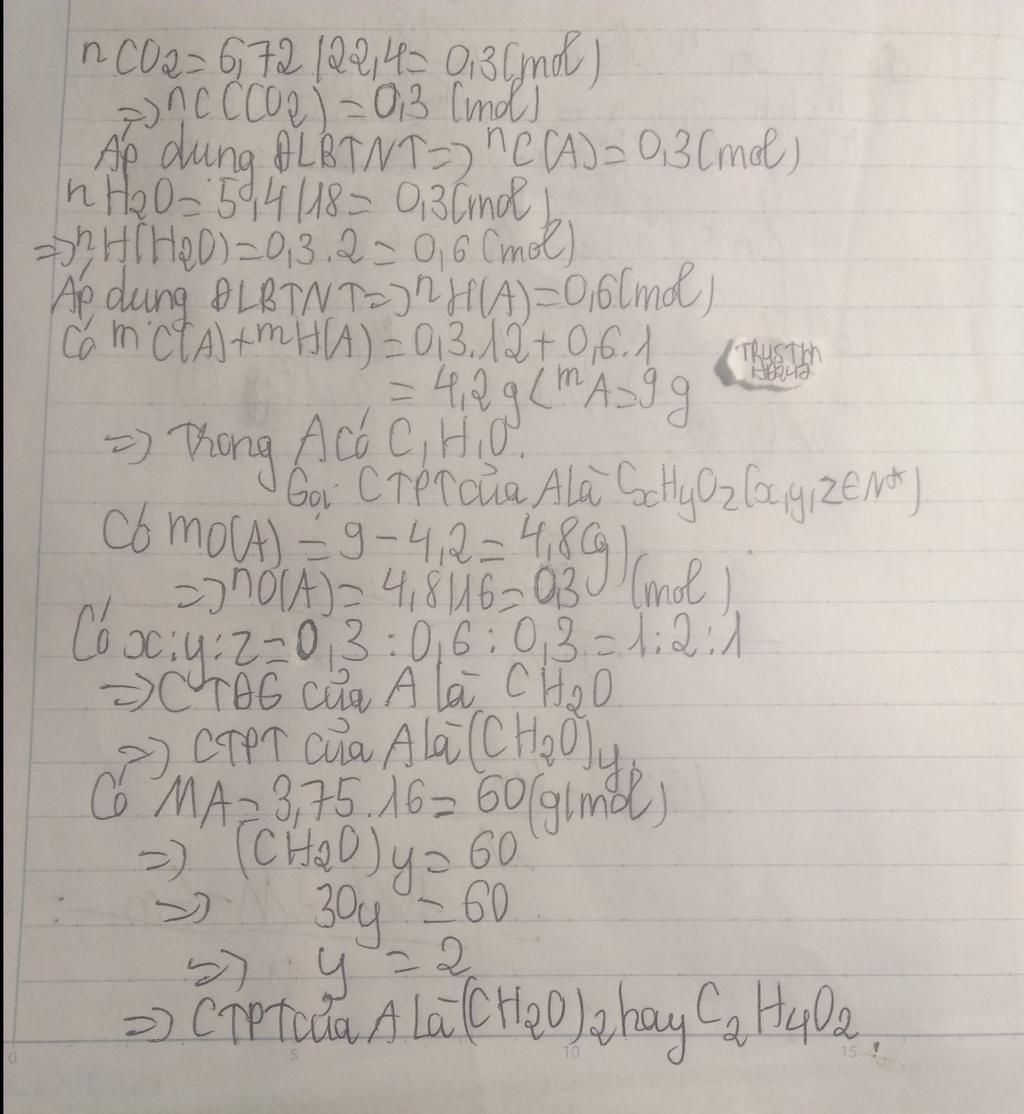 nCO2 = 6,72/22,4 = 0,3(mol)
=> nC(CO2) = 0,3 (mol)
Áp dụng ĐLBTNT => nC(A) = 0,3(mol)
nH2O = 5,4/18 = 0,3(mol)
=> nH(H2O) = 0,3.2 = 0,6(mol)
Áp dụng ĐLBTNT => nH(A) = 0,6(mol)
Có mC(A) + mH(A) = 0,3.12 + 0,6.1
= 4,2g < mA = 9g
=> Trong A có C,H,O.
Gọi CTPT của A là CxHyOz(x,y,z∈N*)
Có mO(A) = 9 - 4,2 = 4,8(g)
=> nO(A) = 4,8/16 = 0,3 (mol)
Có x:y:z = 0,3 : 0,6 : 0,3 = 1:2:1
=> CTĐG của A là CH2O
=> CTPT của A là (CH2O)y.
Có MA = 3,75.16 = 60(g/mol)
=> (CH2O)y = 60
=> 30y = 60
=> y = 2
=> CTPT của A là (CH2O)2 hay C2H4O2.
0 5 10 15